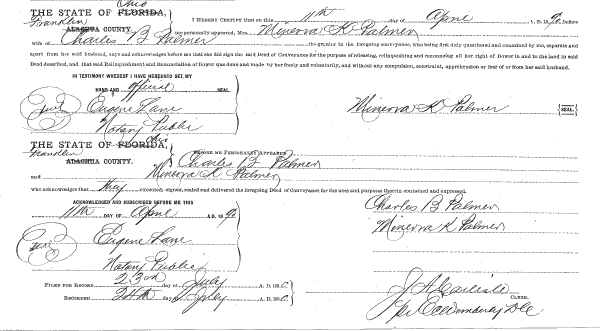 Ohio
THE STATE OF FLORIDA,
Franklin
ALACHUA COUNTY.
I HEREBY CERTIFY that on this 11th day of April A. D. 18 before
me personally appeared, Mrs. Minerva K Palmer
wife of Charles B Palmer the grantor in the foregoing conveyance, who being first duly questioned and examined by me, separate and
apart from her said husband, says and acknowledges before me that she did sign the said Deed of Conveyance for the purpose of releasing, relinquishing and renouncing all her right of Dower in and to the land in said
Deed described, and that said Relinquishment and Renunciation of Dower was done and made by her freely and voluntarily, and without any compulsion, constraint, apprehension or fear of or from her said husband.
IN TESTIMONY WHEREOF I HAVE HEREUNTO SET MY
HAND AND official SEAL.
Seal
Eugene Lane
Minerva K Palmer SEAL
Notary Public
Ohio
THE STATE OF FLORIDA,
Franklin
ALACHUA COUNTY.
BEFORE ME PERSONALLY APPEARED
Charles B Palmer
and Minerva K Palmer
who acknowledges that they executed, signed, sealed and delivered the foregoing Deed of Conveyance for the uses and purposes therein contained and expressed.
ACKNOWLEDGED AND SUBSCRIBED BEFORE ME THIS
11th DAY OF April A. D. 18
Charles B Palmer
Minerva K Palmer
Seal
Eugene Lane
Notary Public
FILED FOR RECORD 23rd day of July A. D. 18
RECORDED 24th day of July A. D. 18
J A Carlisle
CLERK.
per